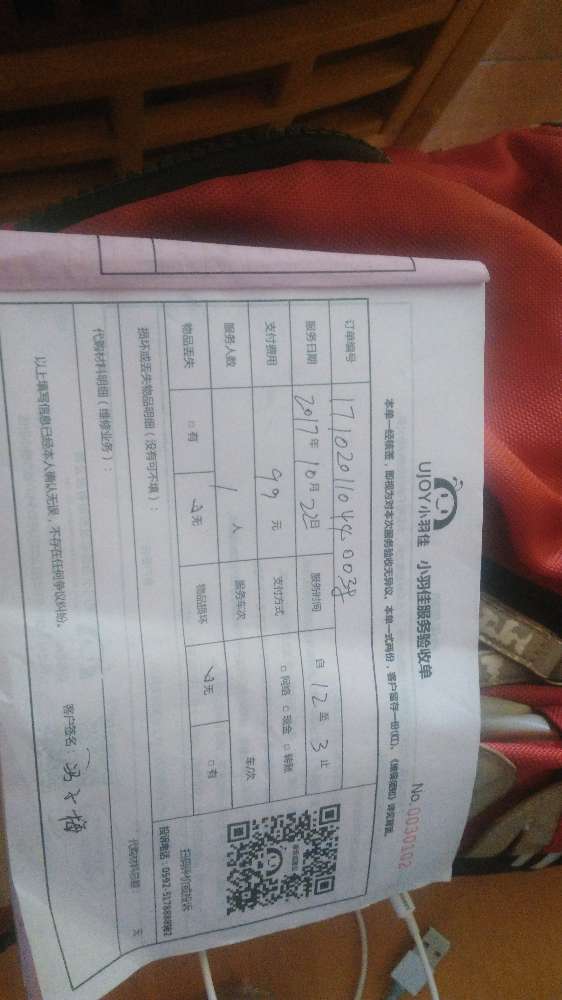 UJOY小羽佳 小羽佳服务验收单 No.0030102
本单一经核签，即视为对本次服务验收无异议，本单一式两份，客户留存一份(红)。
订单编号
服务日期 2017年10月22日 服务时间 自12至3止
支付费用 99元 支付方式 □网络 □现金 □转账
服务人数 1人 服务车次 车/次
物品丢失 □有 ☑无 物品损坏 ☑无 □有
损坏或丢失物品明细（没有可不填）：
扫码评价或投诉
代购材料明细（维修业务）：
代购材料总额： 元
以上填写信息已经本人确认无误，不存在任何争议纠纷。
客户签名：